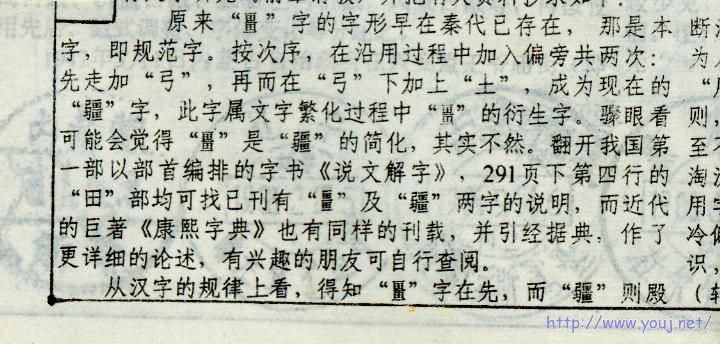 原来“畺”字的字形早在秦代已存在，那是本
字，即规范字。按次序，在沿用过程中加入偏旁共两次：
先走加“弓”，再而在“弓”下加上“土”，成为现在的
“疆”字，此字属文字繁化过程中“畺”的衍生字。骤眼看
可能会觉得“畺”是“疆”的简化，其实不然。翻开我国第
一部以部首编排的字书《说文解字》，291页下第四行的
“田”部均可找已刊有“畺”及“疆”两字的说明，而近代
的巨著《康熙字典》也有同样的刊载，并引经据典，作了
更详细的论述，有兴趣的朋友可自行查阅。
从汉字的规律上看，得知“畺”字在先，而“疆”则殿
断
为
则，
至不
淘
用字
冷
识，
http://www.youj.net/